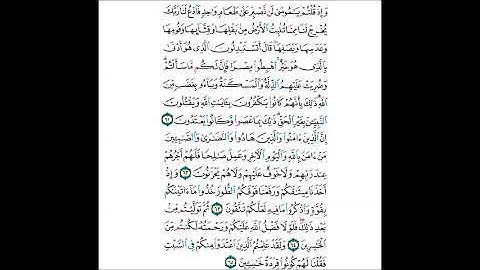 وَإِذْ قُلْتُمْ يَٰمُوسَىٰ لَن نَّصْبِرَ عَلَىٰ طَعَامٍ وَٰحِدٍ فَٱدْعُ لَنَا رَبَّكَ
يُخْرِجْ لَنَا مِمَّا تُنۢبِتُ ٱلْأَرْضُ مِنۢ بَقْلِهَا وَقِثَّآئِهَا وَفُومِهَا
وَعَدَسِهَا وَبَصَلِهَا قَالَ أَتَسْتَبْدِلُونَ ٱلَّذِى هُوَ أَدْنَىٰ
بِٱلَّذِى هُوَ خَيْرٌ ٱهْبِطُوا۟ مِصْرًا فَإِنَّ لَكُم مَّا سَأَلْتُمْ
وَضُرِبَتْ عَلَيْهِمُ ٱلذِّلَّةُ وَٱلْمَسْكَنَةُ وَبَآءُو بِغَضَبٍ مِّنَ
ٱللَّهِ ذَٰلِكَ بِأَنَّهُمْ كَانُوا۟ يَكْفُرُونَ بِـَٔايَٰتِ ٱللَّهِ وَيَقْتُلُونَ
ٱلنَّبِيِّـۧنَ بِغَيْرِ ٱلْحَقِّ ذَٰلِكَ بِمَا عَصَوا۟ وَّكَانُوا۟ يَعْتَدُونَ ٦١
إِنَّ ٱلَّذِينَ ءَامَنُوا۟ وَٱلَّذِينَ هَادُوا۟ وَٱلنَّصَٰرَىٰ وَٱلصَّٰبِـِٔينَ
مَنْ ءَامَنَ بِٱللَّهِ وَٱلْيَوْمِ ٱلْءَاخِرِ وَعَمِلَ صَٰلِحًا فَلَهُمْ أَجْرُهُمْ
عِندَ رَبِّهِمْ وَلَا خَوْفٌ عَلَيْهِمْ وَلَا هُمْ يَحْزَنُونَ ٦٢ وَإِذْ
أَخَذْنَا مِيثَٰقَكُمْ وَرَفَعْنَا فَوْقَكُمُ ٱلطُّورَ خُذُوا۟ مَآ ءَاتَيْنَٰكُم
بِقُوَّةٍ وَٱذْكُرُوا۟ مَا فِيهِ لَعَلَّكُمْ تَتَّقُونَ ٦٣ ثُمَّ تَوَلَّيْتُم مِّنۢ
بَعْدِ ذَٰلِكَ فَلَوْلَا فَضْلُ ٱللَّهِ عَلَيْكُمْ وَرَحْمَتُهُۥ لَكُنتُم مِّنَ
ٱلْخَٰسِرِينَ ٦٤ وَلَقَدْ عَلِمْتُمُ ٱلَّذِينَ ٱعْتَدَوْا۟ مِنكُمْ فِى ٱلسَّبْتِ
فَقُلْنَا لَهُمْ كُونُوا۟ قِرَدَةً خَٰسِـِٔينَ ٦٥